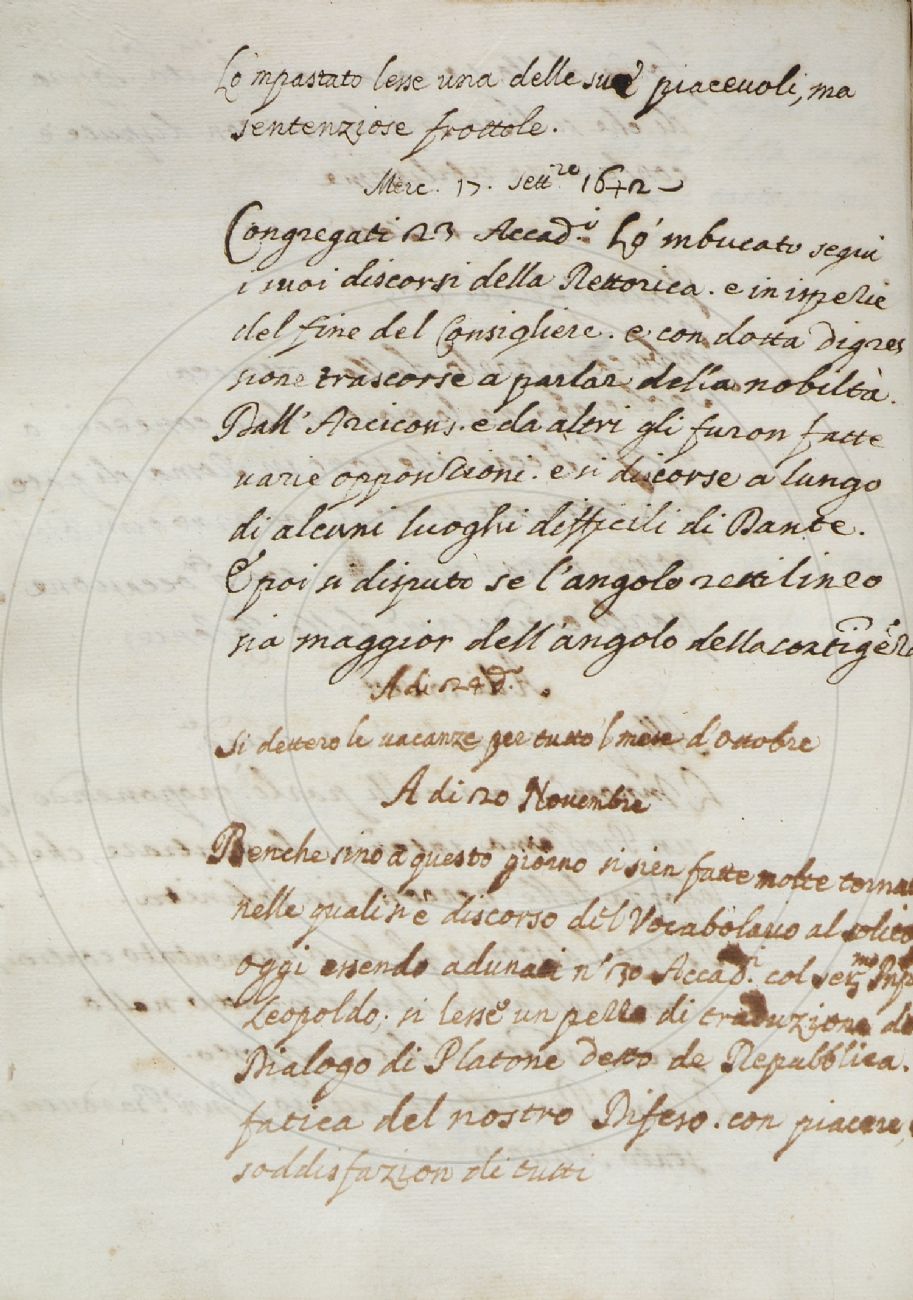 Lo 'mpastato lesse una delle sue piaceuoli, ma
sentenziose frottole.
Merc. 17. Sett.re 1642
Congregati 23 Accad.i Lo 'mbucato seguì
i suoi discorsi della Rettorica. e in ispezie
del fine del Consigliere. e con dotta digres
sione trascorse a parlar della nobiltà.
Dall' Arcicons. e da altri gli furon fatte
uarie opposizioni. e si discorse a lungo
di alcuni luoghi difficili di Dante.
E poi si disputò se l'angolo rettilineo
sia maggior dell'angolo della contigenza
A di 24 d.
Si dettero le uacanze per tutto 'l mese d'Ottobre
A di 20 Nouembre
Benche sino a questo giorno si sien fatte molte tornat
nelle quali s'è discorso del Vocabolario al solito
oggi essendo adunati n.o 30 Accad.i col ser.mo Prip
Leopoldo, si lesse un pezzo di traduzione del
Dialogo di Platone detto de Repubblica.
fatica del nostro Difeso. con piacere,
soddisfazion di tutti